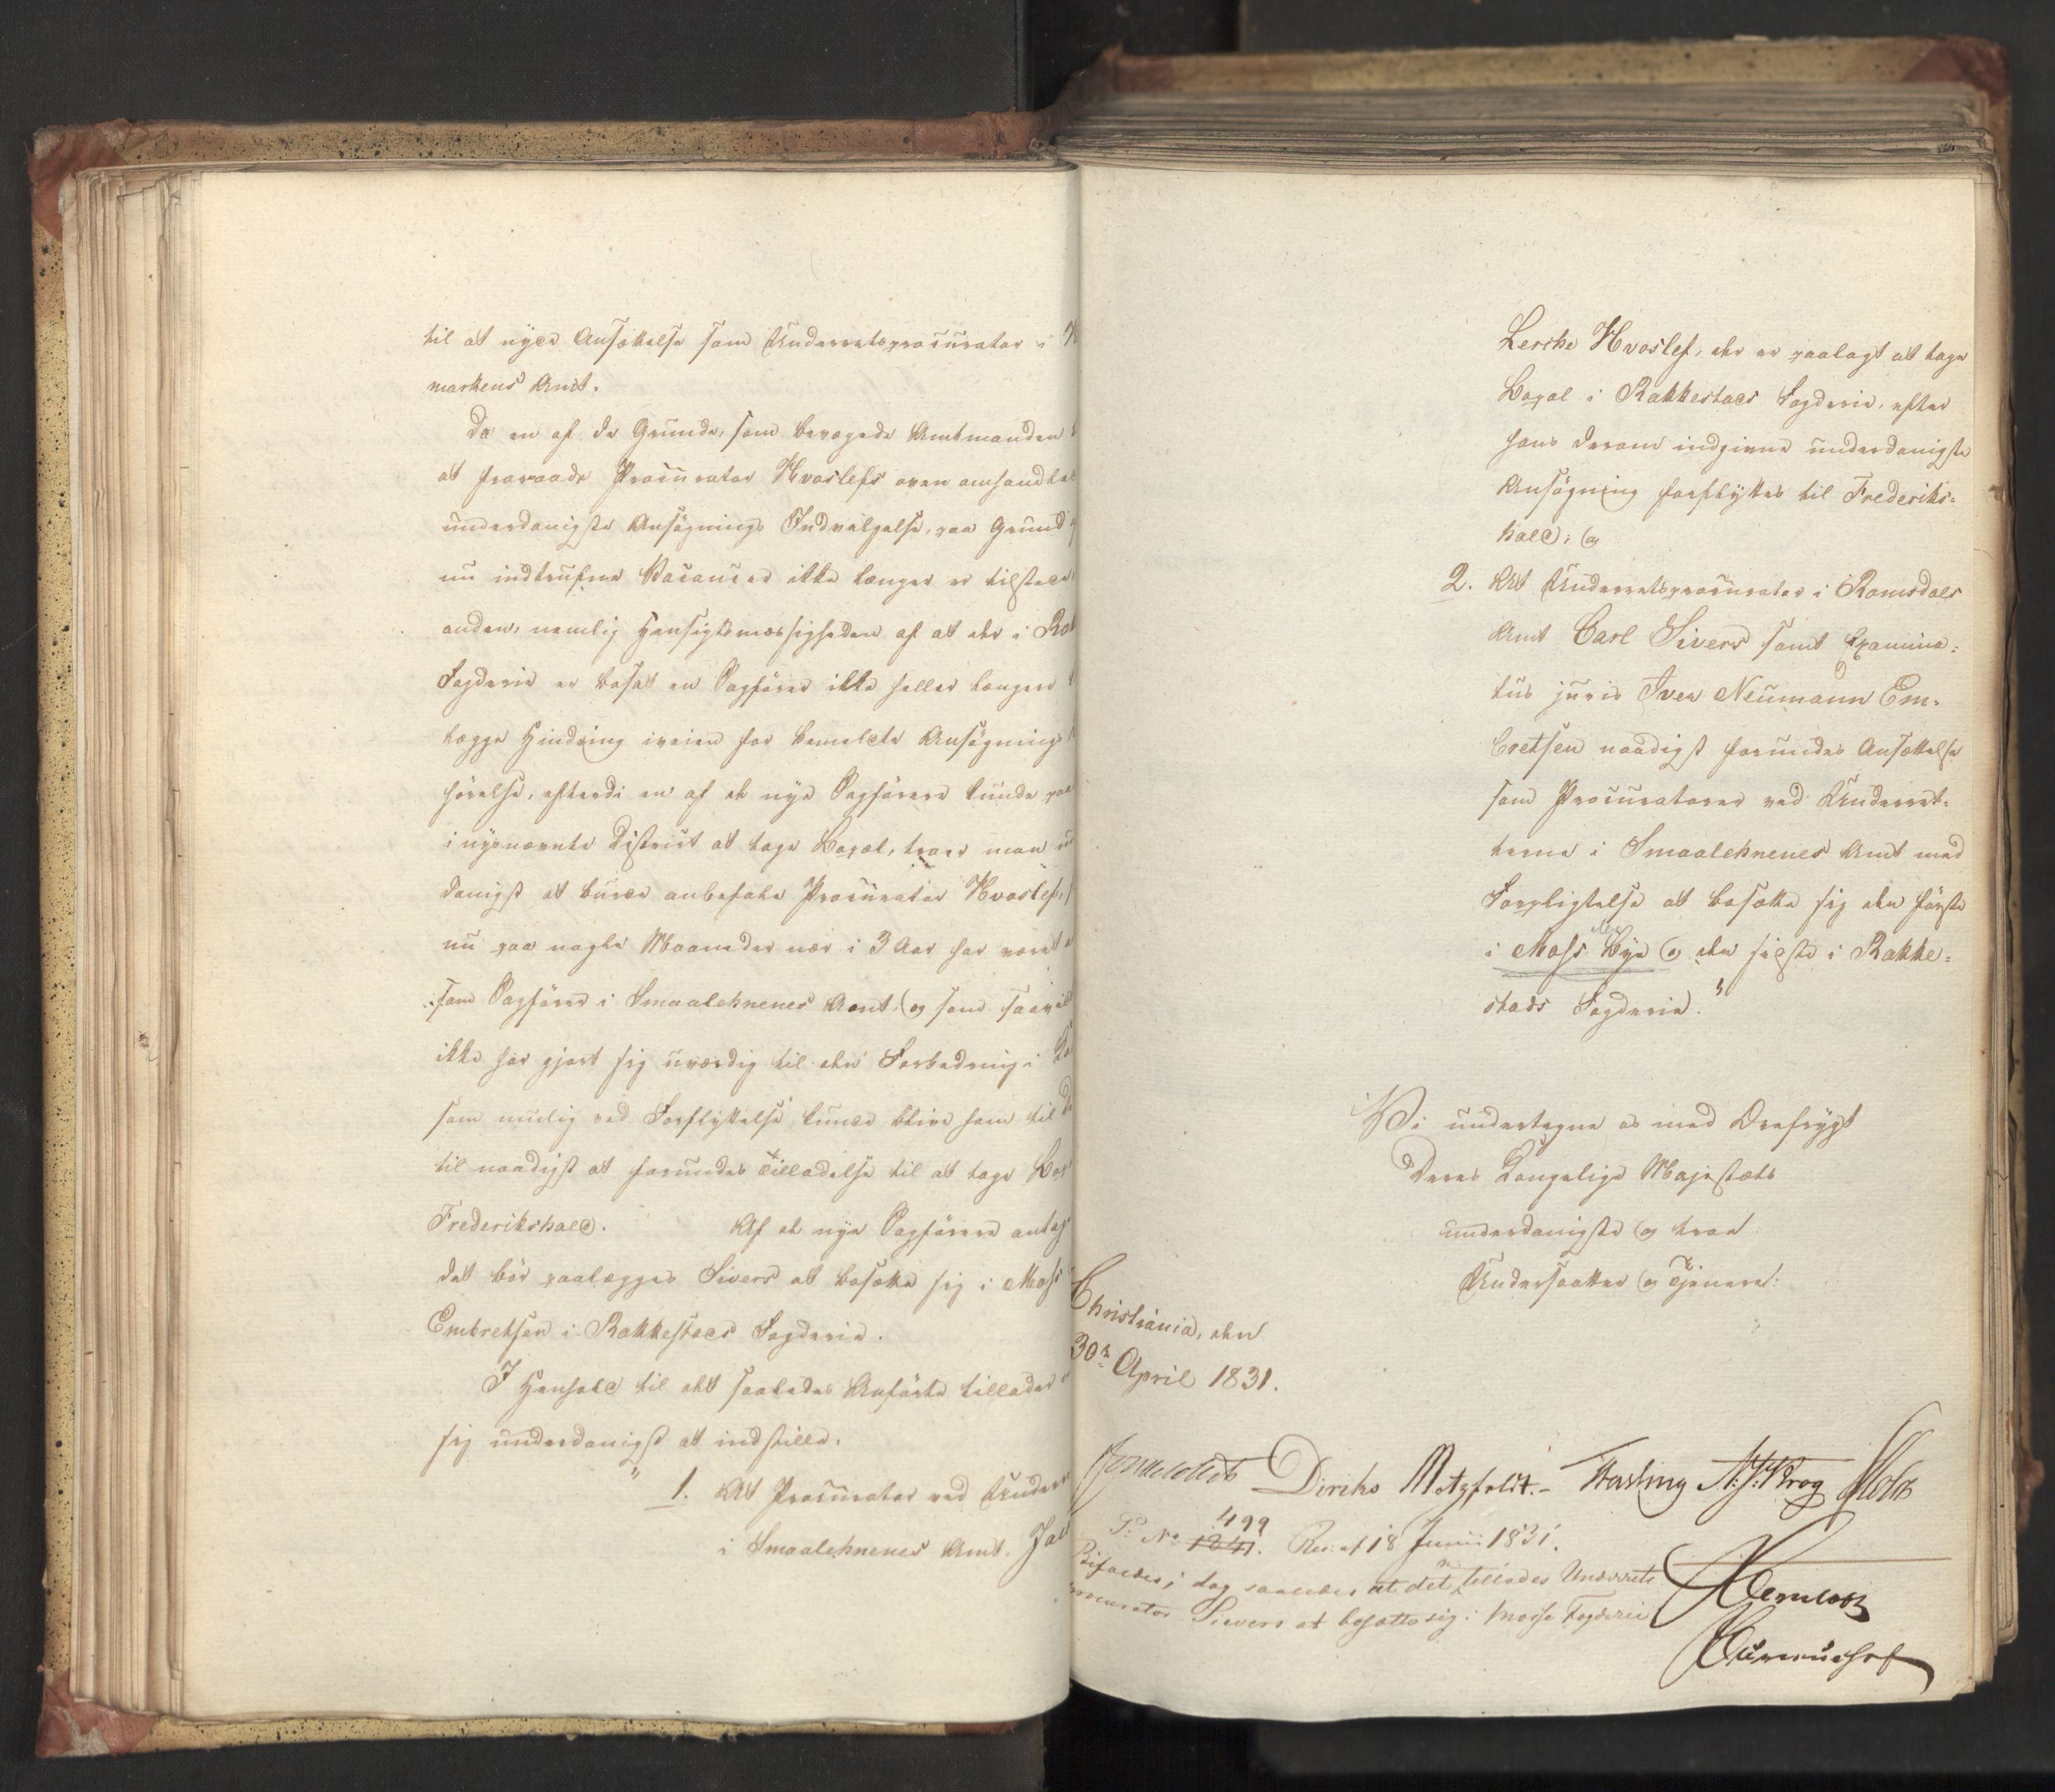 til at nyde Ansættelse som Underretsprocurator i
markens Amt.
Da en af de Grunde, som bevægede Amtmanden
at fraraade Procurator Hvoslefs oven omhandlede
underdanigste Ansøgnings Indvilgelse, paa Grund
nu indtrufne Vacancer ikke længer er tilstede,
anden, nemlig Hensigtsmæssigheden af at der i Rak
Fogderie er bosat en Sagfører ikke heller længere
lægge Hindring iveien for bemeldte Ansøgnings
førelse, efterdi en af de nye Sagførere kunde paa
i nysnævnte District at tage Bopæl, troer man un
danigst at burde anbefale Procurator Hvoslef,
nu paa nogle Maaneder nær i 3 Aar har været
som Sagfører i Smaalehnenes Amt, og som saavidt
ikke har gjort sig uværdig til den Forbedring i
som mulig ved Forflyttelse kunde blive ham til
til naadigst at forundes Tilladelse til at tage Bop
Frederikshald. Af de nye Sagførere antag
det bør paalægges Sivers at bosætte sig i Moss
Embretsen i Rakkestads Fogderie.
I Henhold til det saaledes Anførte tillader
sig underdanigst at indstille:
" 1. At Procurator ved Under
i Smaalehnenes Amt. Jac
Lerche Hvoslef, der er paalagt at tage
Bopæl i Rakkestads Fogderie, efter
hans derom indgivne underdanigste
Ansøgning forflyttes til Frederiks-
hald; og
2. At Underretsprocurator i Romsdals
Amt Carl Sivers samt Examina-
tus juris Iver Neumann Em-
bretsen naadigst forundes Ansættelse
som Procuratorer ved Underret-
terne i Smaalehnenes Amt med
Forpligtelse at bosætte sig den første
i Moss Bye og den sidste i Rakke-
stads Fogderie."
Vi undertegne os med Ærefrygt
Deres Kongelige Majestæts
underdanigste og troe
Undersaatter og Tjenere:
Christiania, den
30te April 1831.
Diriks Motzfeldt. Fasting Krog Holst
P: No 1241. 499 Res: af 18 Junii 1831.
Bifaldes i dag saaledes at det tillades Underrets
procurator Sievers at bosætte sig i Mosse Fogderie